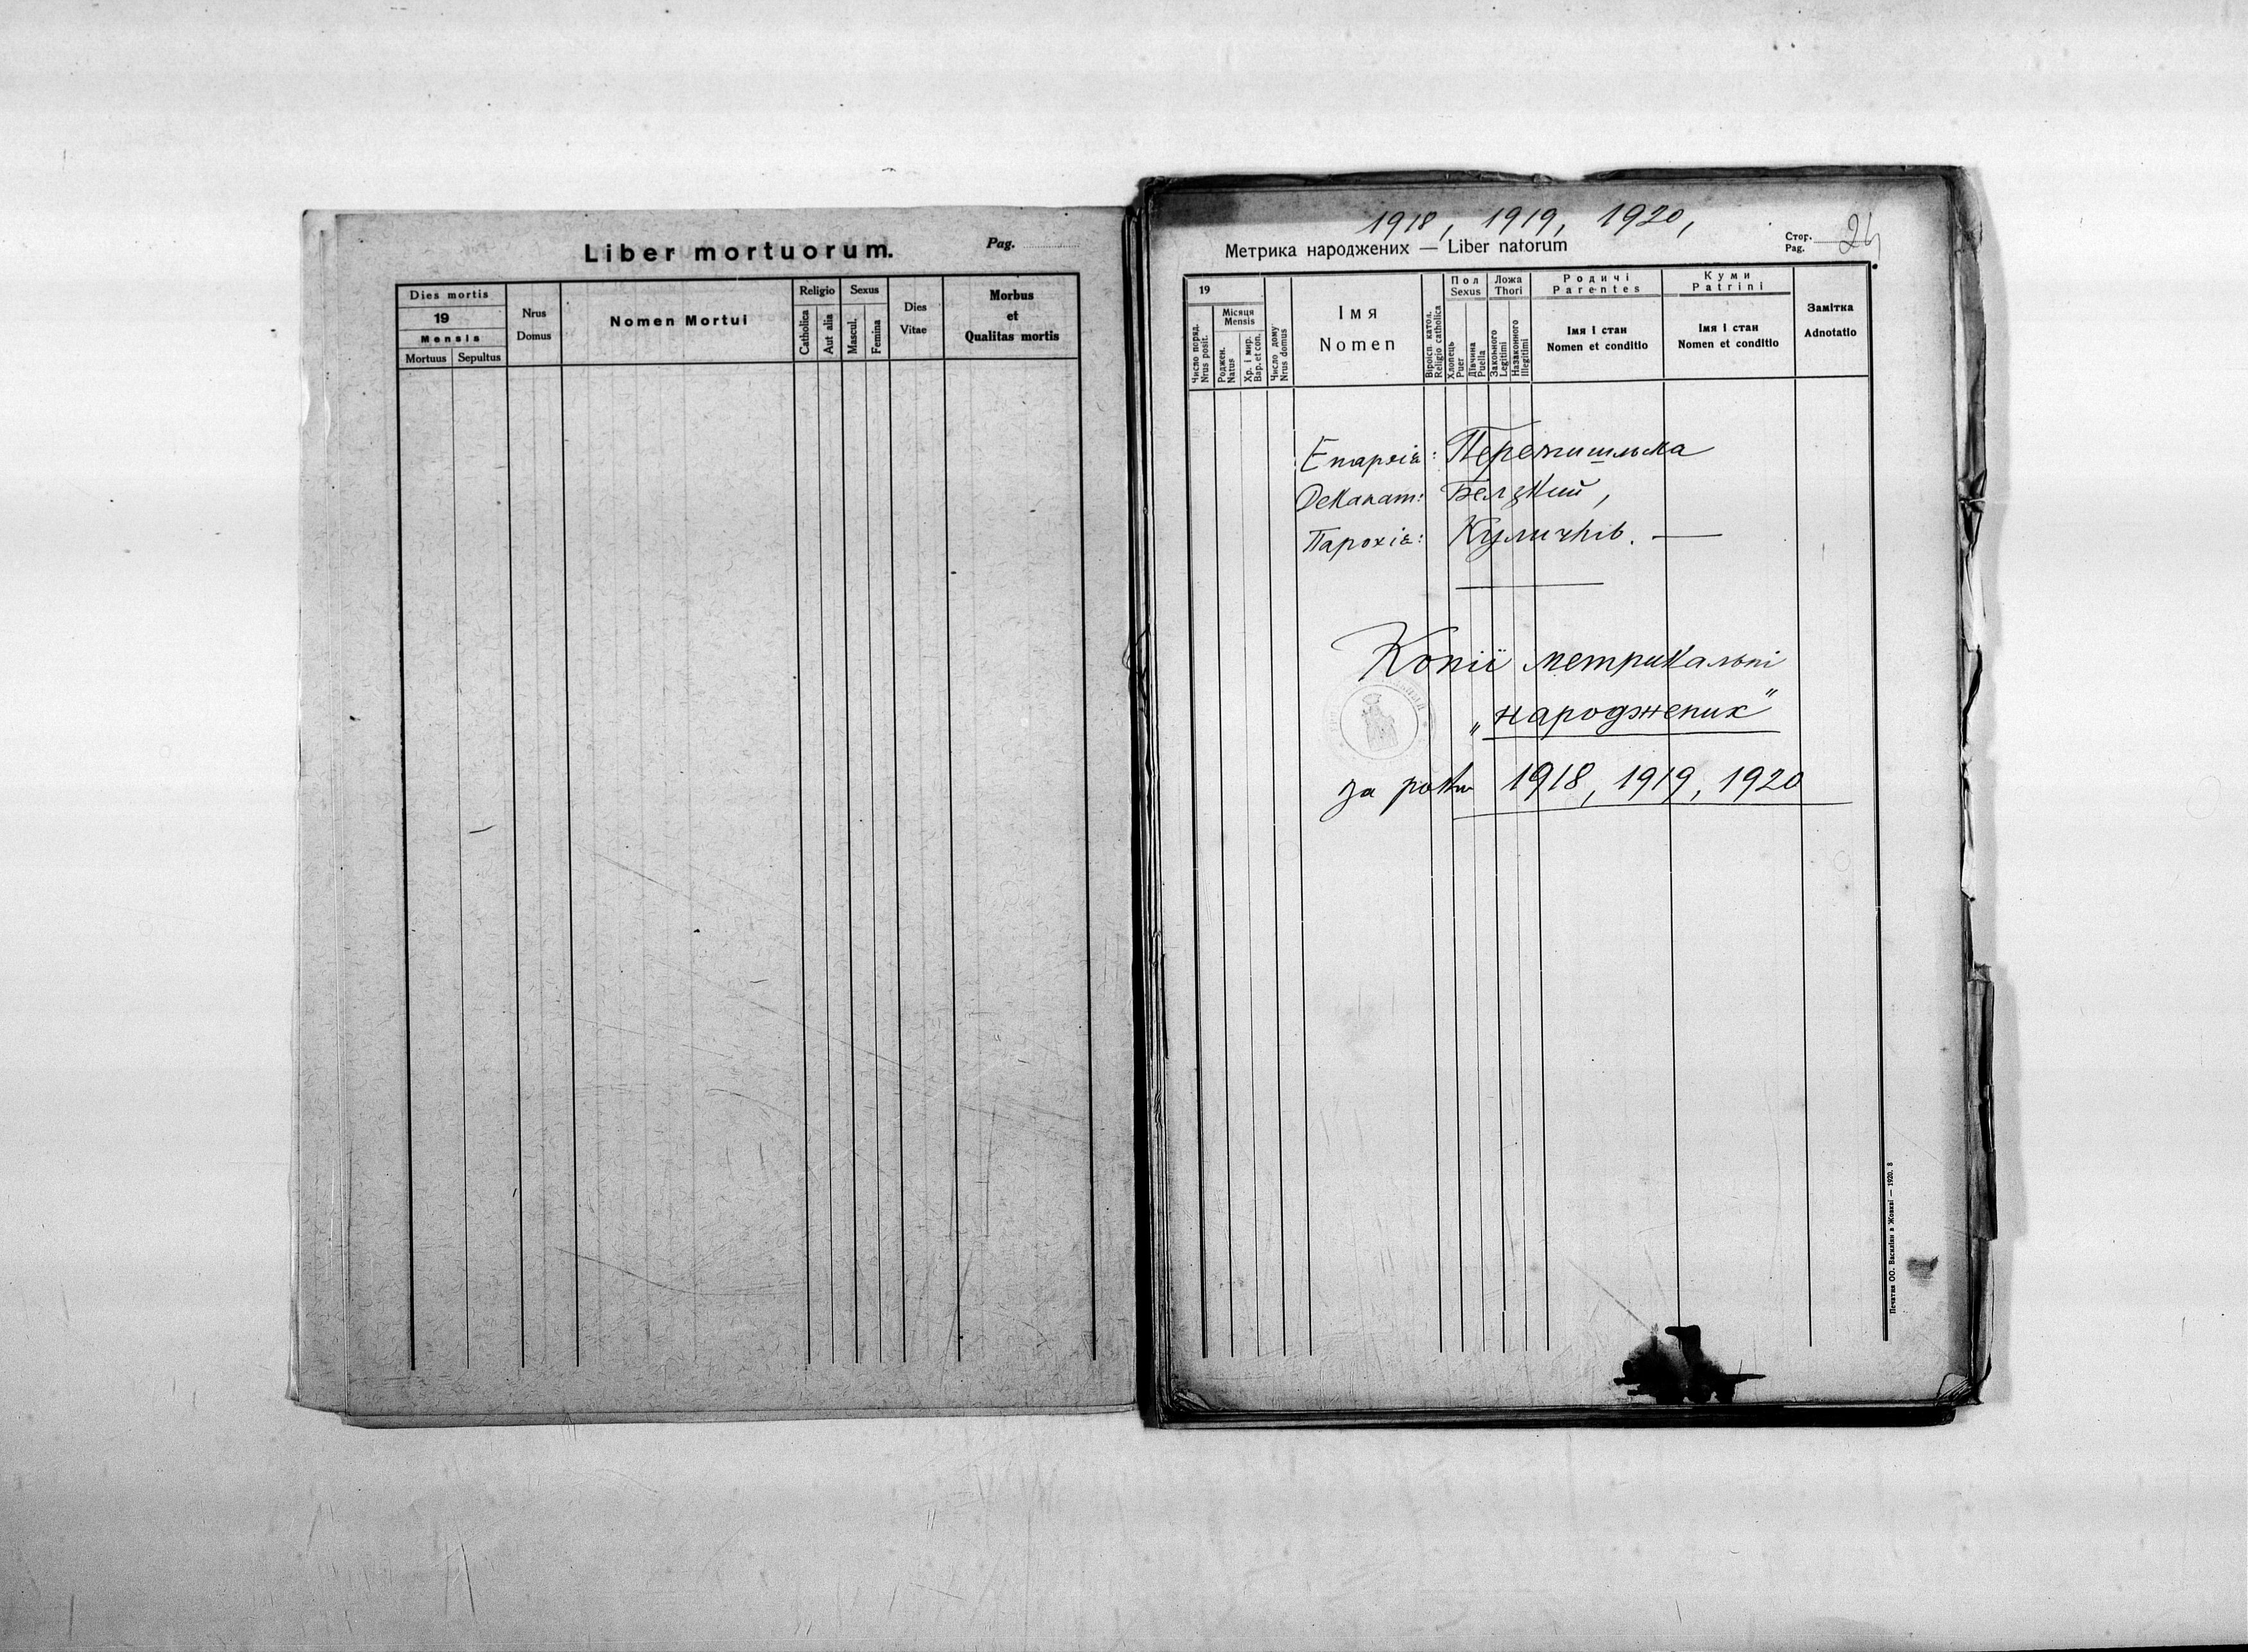 Liber mortuorum.
Pag.
Dies mortis
19
Mensis
Mortuus
Sepultus
Nrus
Domus
Nomen Mortui
Religio
Catholica
Aut alia
Sexus
Mascul.
Femina
Dies
Vitae
Morbus
et
Qualitas mortis
1918, 1919, 1920,
Метрика народжених — Liber natorum
Стор.
Pag.
24
19
Число поряд.
Nrus posit.
Місяця
Mensis
Роджен.
Natus
Хр. і мир.
Bap. et con.
Число дому
Nrus domus
Імя
Nomen
Віроісп. катол.
Religio catholica
Пол
Sexus
Хлопець
Puer
Дівчина
Puella
Ложа
Thori
Законного
Legitimi
Незаконного
Illegitimi
Родичі
Parentes
Імя і стан
Nomen et conditio
Куми
Patrini
Імя і стан
Nomen et conditio
Замітка
Adnotatio
Епархія: Перемишльска
Деканат: Белзкий,
Парохія: Куличків. —
Копії метрикальні
„народжених"
за роки 1918, 1919, 1920
Печатня ОО. Василіян в Жовкві — 1920. 8